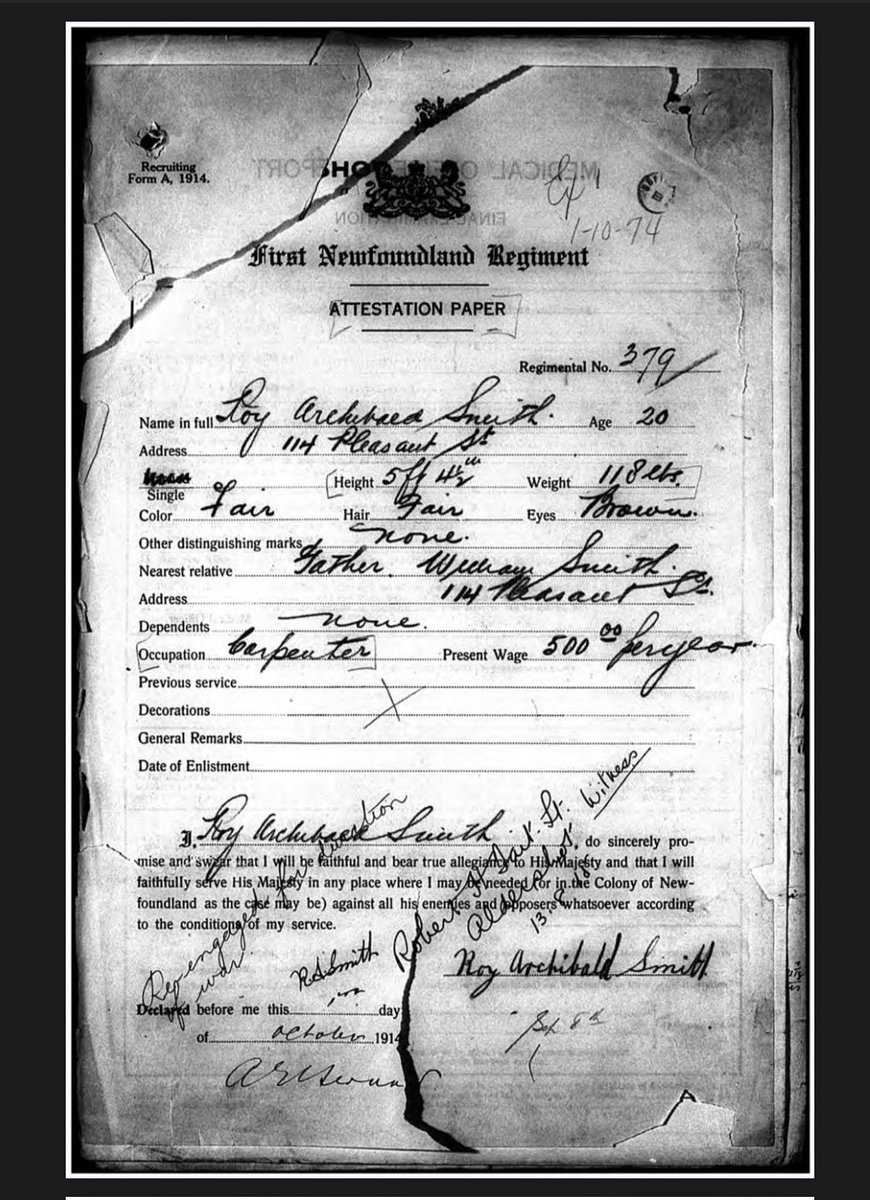 Recruiting
Form A, 1914.
1-10-74
First Newfoundland Regiment
ATTESTATION PAPER
Regimental No. 379
Name in full Roy Archibald Smith. Age 20
Address 114 Pleasant St
Single Height 5ft 4½ Weight 118 lbs.
Color Fair Hair Fair Eyes Brown.
Other distinguishing marks none.
Nearest relative Father. William Smith.
Address 114 Pleasant St.
Dependents none.
Occupation Carpenter Present Wage 500 00 per year.
Previous service
Decorations
General Remarks
Date of Enlistment
I, Roy Archibald Smith, do sincerely pro-
mise and swear that I will be faithful and bear true allegiance to His Majesty and that I will
faithfully serve His Majesty in any place where I may be needed (or in the Colony of New-
foundland as the case may be) against all his enemies and opposers whatsoever according
to the conditions of my service.
Re-engaged for duration
of war
R A Smith
Robert H Tait. Lt. Witness
Aldershot
Roy Archibald Smith
Declared before me this 1st day
of October 1914
Sep 8th